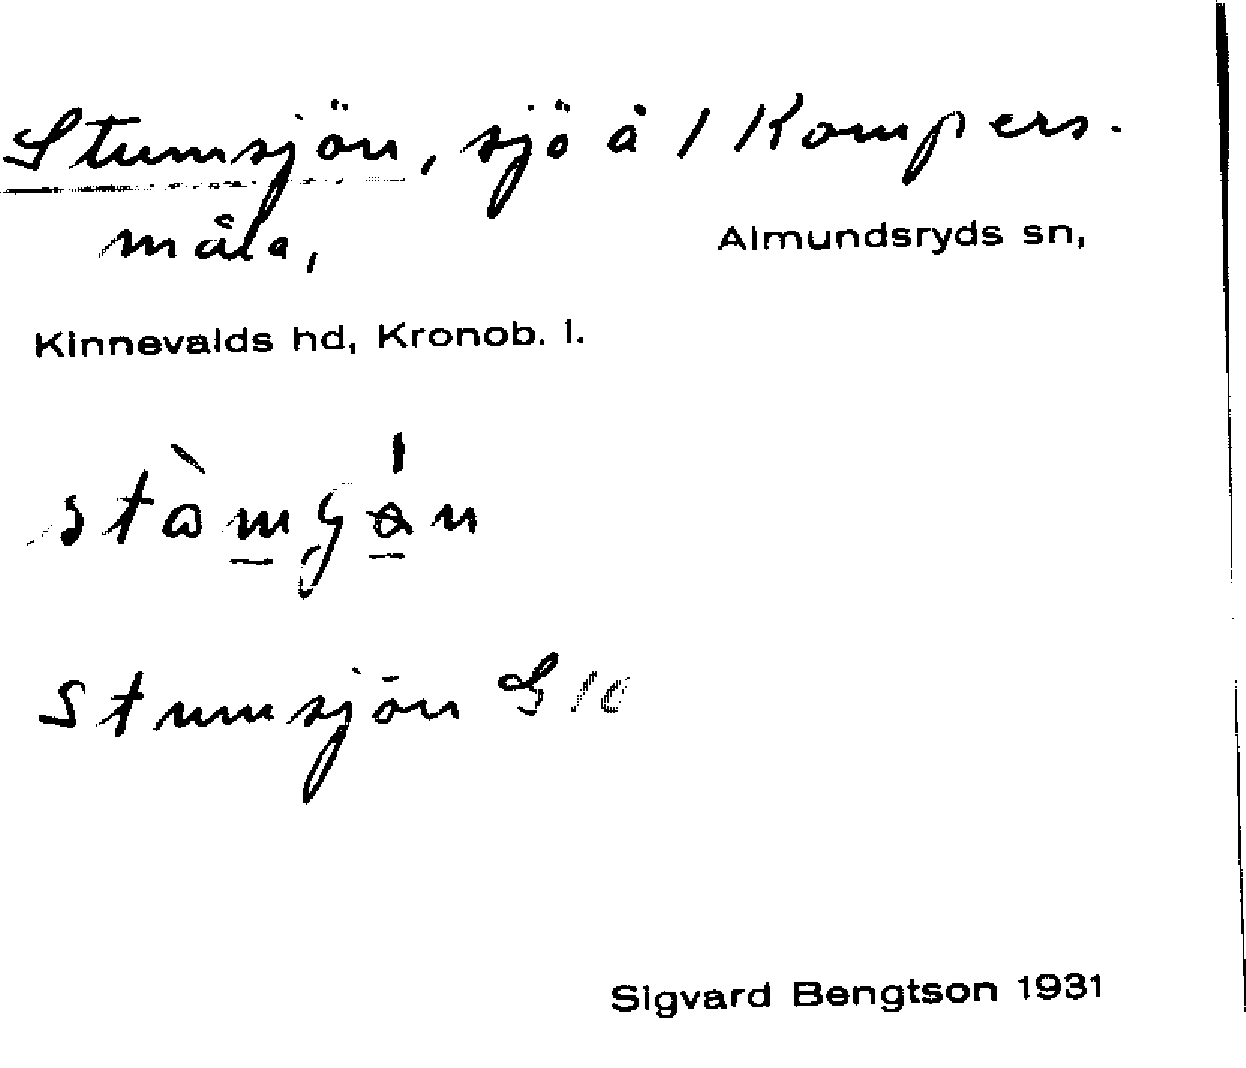 Stumsjön, sjö å / Kompers-
måla, Almundsryds sn,
Kinnevalds hd, Kronob. l.
Stumsjön
Sigvard Bengtson 1931